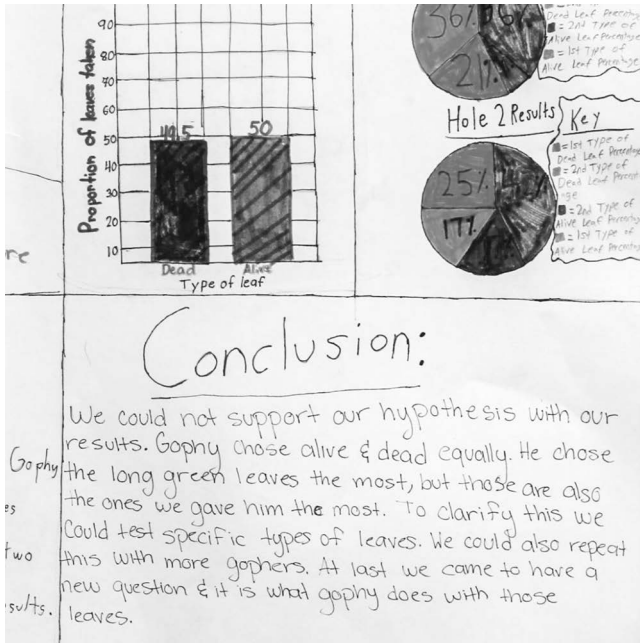 Proportion of leaves taken
90
80
70
60
50
40
30
20
10
49.5
50
Dead
Alive
Type of leaf
36%
21%
Dead Leaf Percentage
= 2nd Type of
Alive Leaf Percentage
= 1st Type of
Alive Leaf Percentage
Hole 2 Results
25%
17%
Key
= 1st Type of
Dead Leaf Percentage
= 2nd Type of
Dead Leaf Percent-
age
= 2nd Type of
Alive Leaf Percentage
= 1st Type of
Alive Leaf Percentage
re
Gophy
es
two
sults.
Conclusion:
We could not support our hypothesis with our
results. Gophy chose alive & dead equally. He chose
the long green leaves the most, but those are also
the ones we gave him the most. To clarify this we
Could test specific types of leaves. We could also repeat
this with more gophers. At last we came to have a
new question & it is what gophy does with those
leaves.